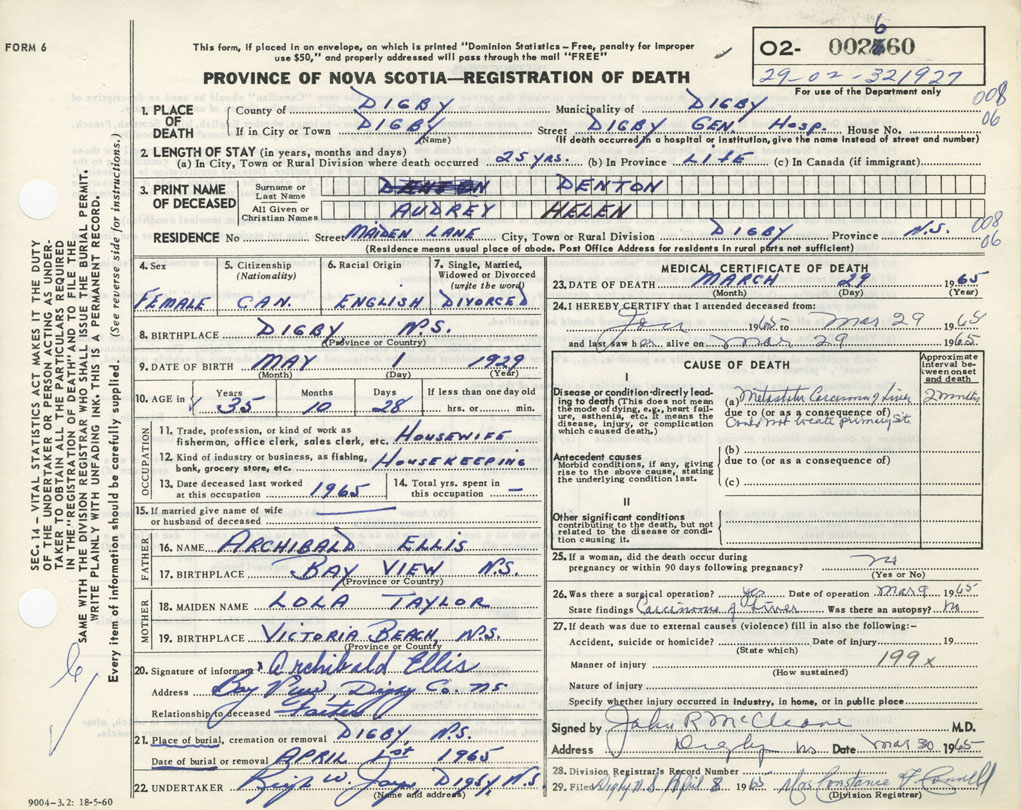 FORM 6
This form, if placed in an envelope, on which is printed "Dominion Statistics – Free, penalty for improper
use $50," and properly addressed will pass through the mail "FREE"
PROVINCE OF NOVA SCOTIA—REGISTRATION OF DEATH
6
O2- 002 60
29-02-321927
For use of the Department only
008
06
1. PLACE OF DEATH
County of DIGBY Municipality of DIGBY
If in City or Town DIGBY Street DIGBY GEN. HOSP. House No.
(Name) (If death occurred in a hospital or institution, give the name instead of street and number)
2. LENGTH OF STAY (in years, months and days)
(a) In City, Town or Rural Division where death occurred 25 YRS. (b) In Province LIFE (c) In Canada (if immigrant).
3. PRINT NAME OF DECEASED
Surname or Last Name DENTON DENTON
All Given or Christian Names AUDREY HELEN
RESIDENCE No Street MAIDEN LANE City, Town or Rural Division DIGBY Province N.S.
008
06
(Residence means usual place of abode. Post Office Address for residents in rural parts not sufficient)
4. Sex FEMALE
5. Citizenship (Nationality) CAN.
6. Racial Origin ENGLISH
7. Single, Married, Widowed or Divorced (write the word) DIVORCED
8. BIRTHPLACE DIGBY N.S.
(Province or Country)
9. DATE OF BIRTH MAY 1 1929
(Month) (Day) (Year)
10. AGE in Years 35 Months 10 Days 28 If less than one day old hrs. or min.
OCCUPATION
11. Trade, profession, or kind of work as fisherman, office clerk, sales clerk, etc. HOUSEWIFE
12. Kind of industry or business, as fishing, bank, grocery store, etc. HOUSEKEEPING
13. Date deceased last worked at this occupation 1965
14. Total yrs. spent in this occupation –
15. If married give name of wife or husband of deceased
FATHER
16. NAME ARCHIBALD ELLIS
17. BIRTHPLACE BAY VIEW N.S.
(Province or Country)
MOTHER
18. MAIDEN NAME LOLA TAYLOR
19. BIRTHPLACE VICTORIA BEACH, N.S.
(Province or Country)
20. Signature of informant Archibald Ellis
Address Bay View, Digby Co. NS
Relationship to deceased Father
21. Place of burial, cremation or removal DIGBY, N.S.
Date of burial or removal APRIL 1st 1965
22. UNDERTAKER W. Digby N.S.
(Name and address)
9004-3.2: 18-5-60
MEDICAL CERTIFICATE OF DEATH
23. DATE OF DEATH MARCH 29 1965
(Month) (Day) (Year)
24. I HEREBY CERTIFY that I attended deceased from:
Jan 1965 to Mar 29 1965
and last saw h er alive on Mar 29 1965
CAUSE OF DEATH
Approximate interval between onset and death
I
Disease or condition directly leading to death (This does not mean the mode of dying, e.g., heart failure, asthenia, etc. It means the disease, injury, or complication which caused death.)
(a) Metastatic Carcinoma of Liver 2 months
due to (or as a consequence of)
Could not locate primary site
Antecedent causes
Morbid conditions, if any, giving rise to the above cause, stating the underlying condition last.
(b)
due to (or as a consequence of)
(c)
II
Other significant conditions contributing to the death, but not related to the disease or condition causing it.
25. If a woman, did the death occur during pregnancy or within 90 days following pregnancy? no
(Yes or No)
26. Was there a surgical operation? yes Date of operation Mar 9 1965
State findings Carcinoma of Liver Was there an autopsy? No
27. If death was due to external causes (violence) fill in also the following:–
Accident, suicide or homicide? Date of injury 19
(State which)
Manner of injury 199x
(How sustained)
Nature of injury
Specify whether injury occurred in industry, in home, or in public place
Signed by John R McCleave M.D.
Address Digby NS Date Mar 30 1965
28. Division Registrar's Record Number
29. Filed Digby N.S. April 8 1965 Mrs Constance
(Division Registrar)
SEC. 14 – VITAL STATISTICS ACT MAKES IT THE DUTY
OF THE UNDERTAKER OR PERSON ACTING AS UNDER-
TAKER TO OBTAIN ALL THE PARTICULARS REQUIRED
IN THE "REGISTRATION OF DEATH" AND TO FILE THE
SAME WITH THE DIVISION REGISTRAR WHO SHALL ISSUE THE BURIAL PERMIT.
WRITE PLAINLY WITH UNFADING INK. THIS IS A PERMANENT RECORD.
Every item of information should be carefully supplied. (See reverse side for instructions.)
6